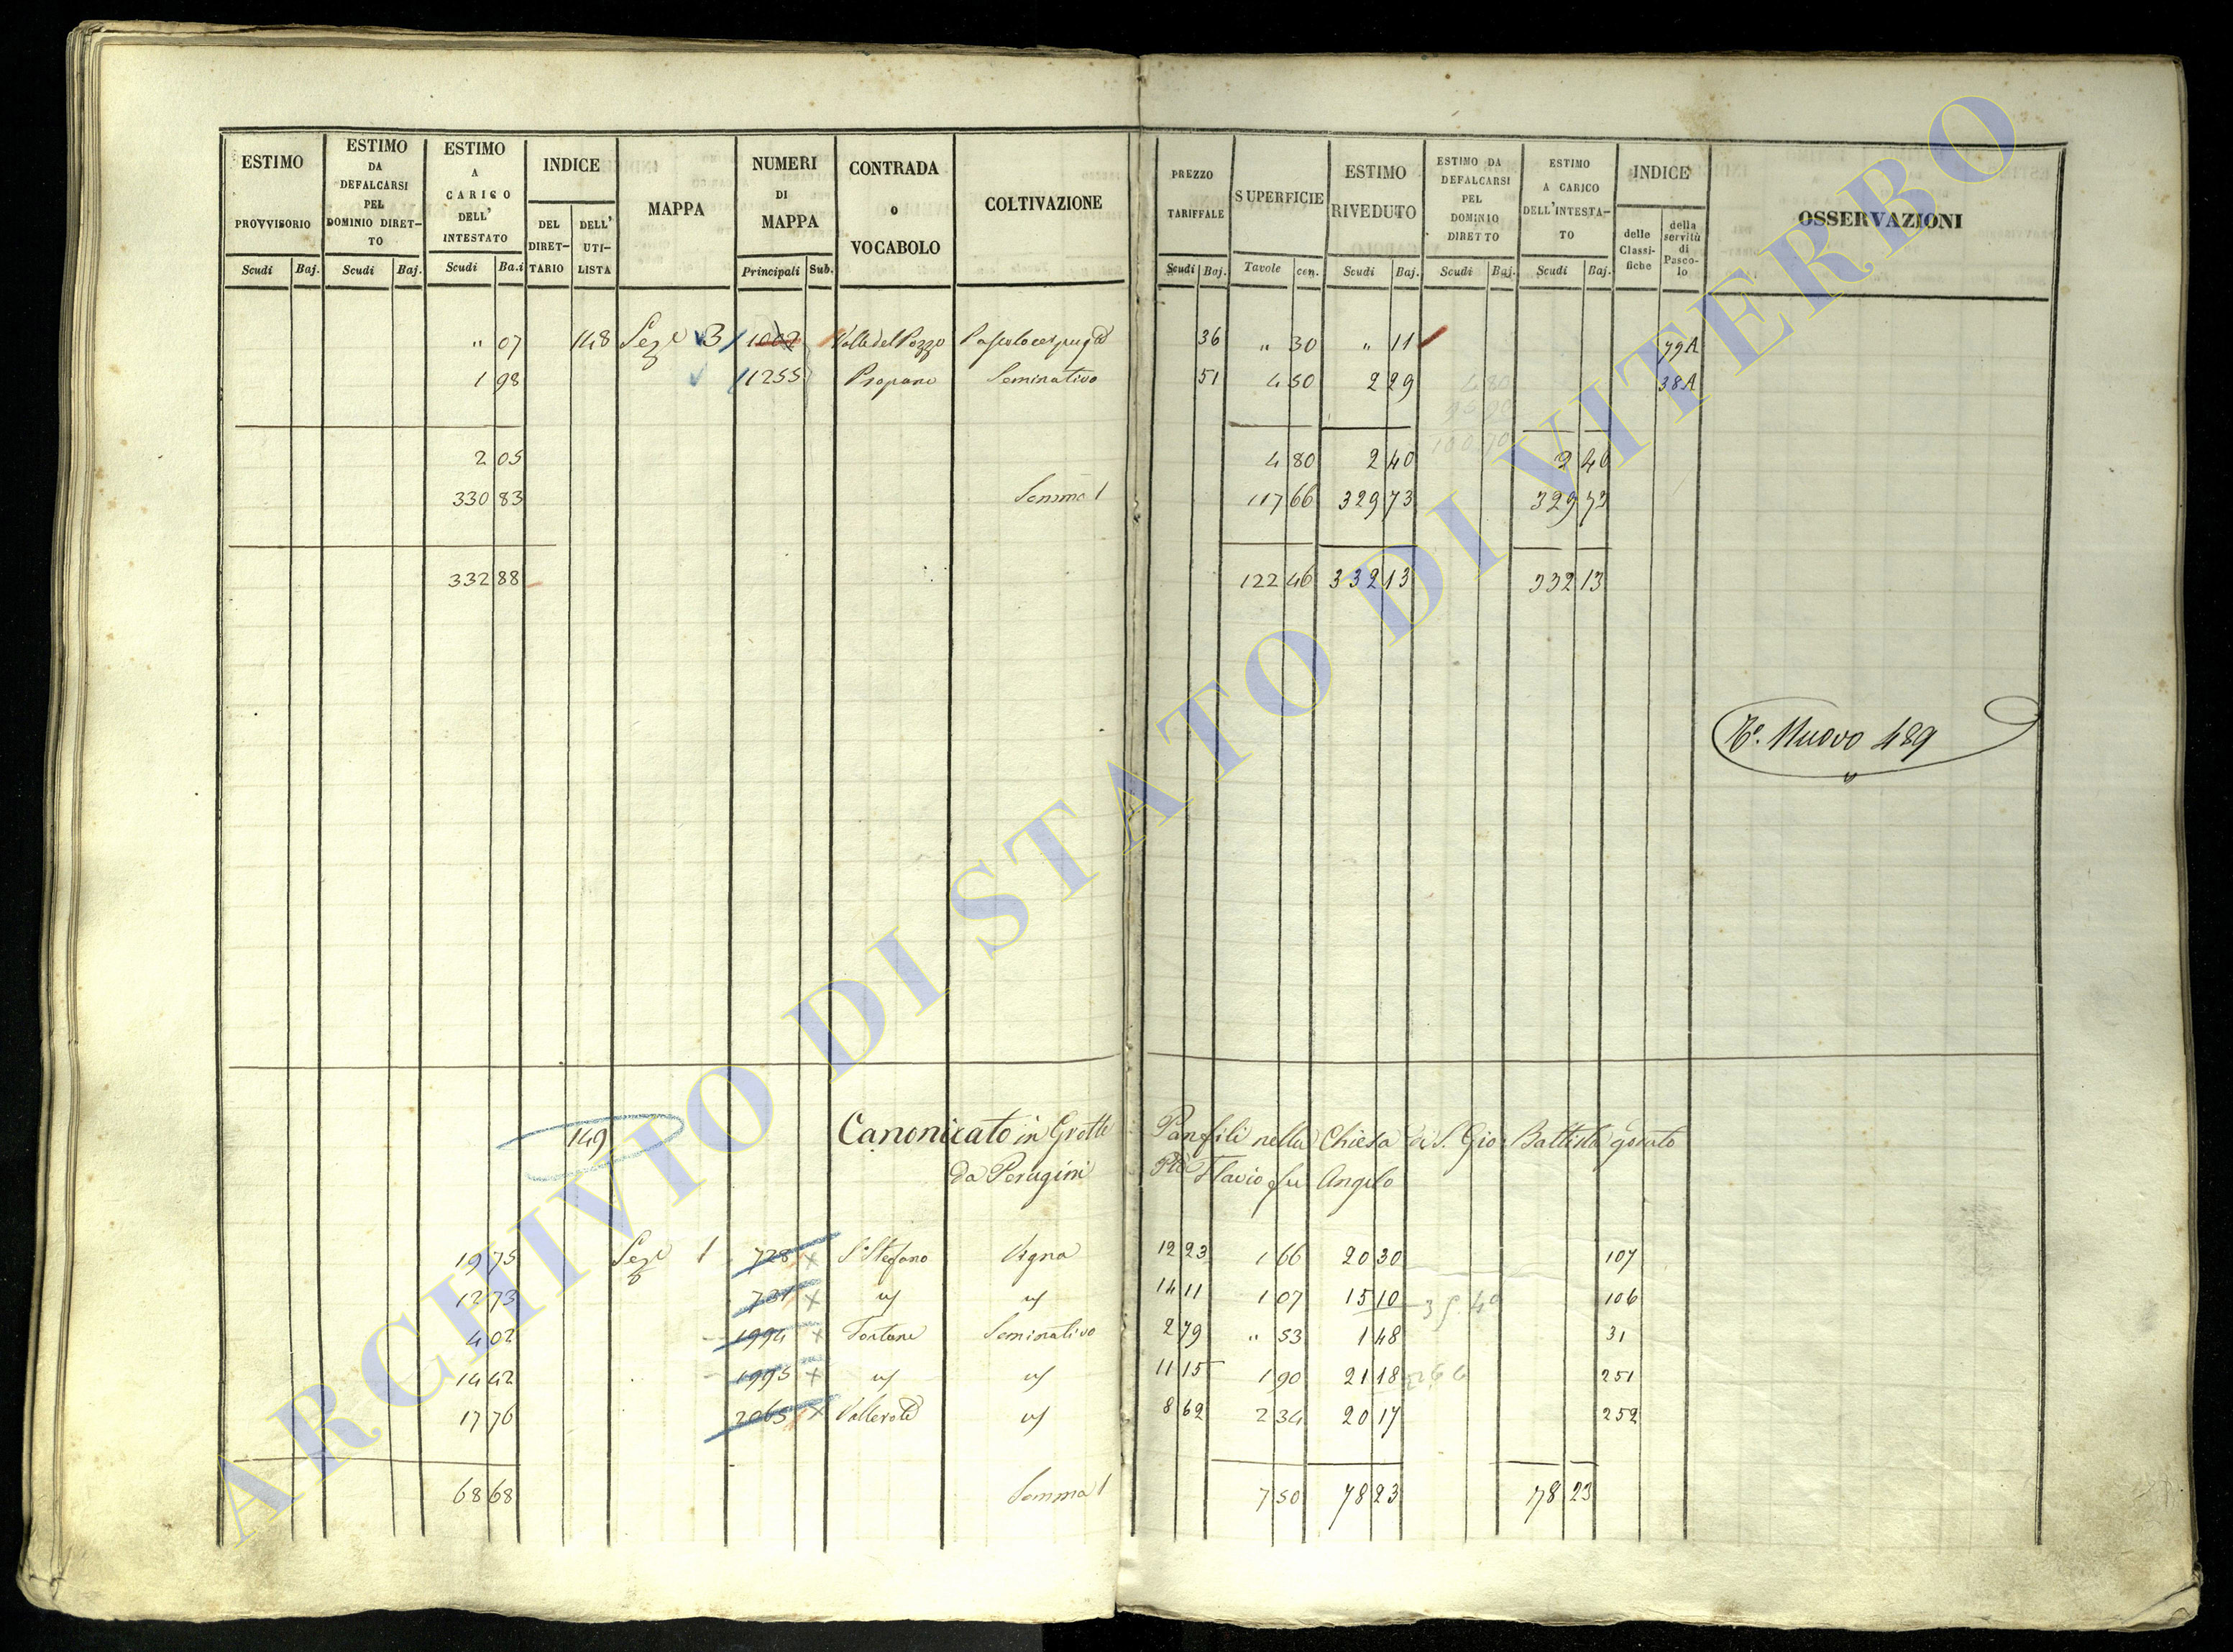 ESTIMO PROVVISORIO Scudi Baj.
ESTIMO DA DEFALCARSI PEL DOMINIO DIRET-TO Scudi Baj.
ESTIMO A CARICO DELL' INTESTATO Scudi Ba.i
INDICE DEL DIRET-TARIO DELL' UTI-LISTA
MAPPA
NUMERI DI MAPPA Principali Sub.
CONTRADA o VOCABOLO
COLTIVAZIONE
PREZZO TARIFFALE Scudi Baj.
SUPERFICIE Tavole cen.
ESTIMO RIVEDUTO Scudi Baj.
ESTIMO DA DEFALCARSI PEL DOMINIO DIRETTO Scudi Baj.
ESTIMO A CARICO DELL'INTESTA-TO Scudi Baj.
INDICE delle Classi-fiche della servitù di Pasco-lo
OSSERVAZIONI
" 07 148 Sez.e 3 1002 Valle del Pozzo Pascolo cespug.to 36 " 30 " 11 79A
1 98 1255 Propano Seminativo 51 4 50 2 29 38A
2 05 4 80 2 40 2 40
330 83 Somma 1 117 66 329 73 329 73
332 88 122 46 332 13 332 13
N.º Nuovo 489
149 Canonicato in Grotte Panfili nella Chiesa di S. Gio: Battista goduto
da Perugini Flavio fu Angelo
19 75 Sez.e 1 728 x S. Stefano Vigna 12 23 1 66 20 30 107
12 73 731 x " " 14 11 1 07 15 10 35.40 106
4 02 1994 x Fontane Seminativo 2 79 " 53 1 48 31
14 42 1995 x " " 11 15 1 90 21 18 251
17 76 2065 x " 8 62 2 34 20 17 252
68 68 Somma 1 7 50 78 23 78 23
ARCHIVIO DI STATO DI VITERBO